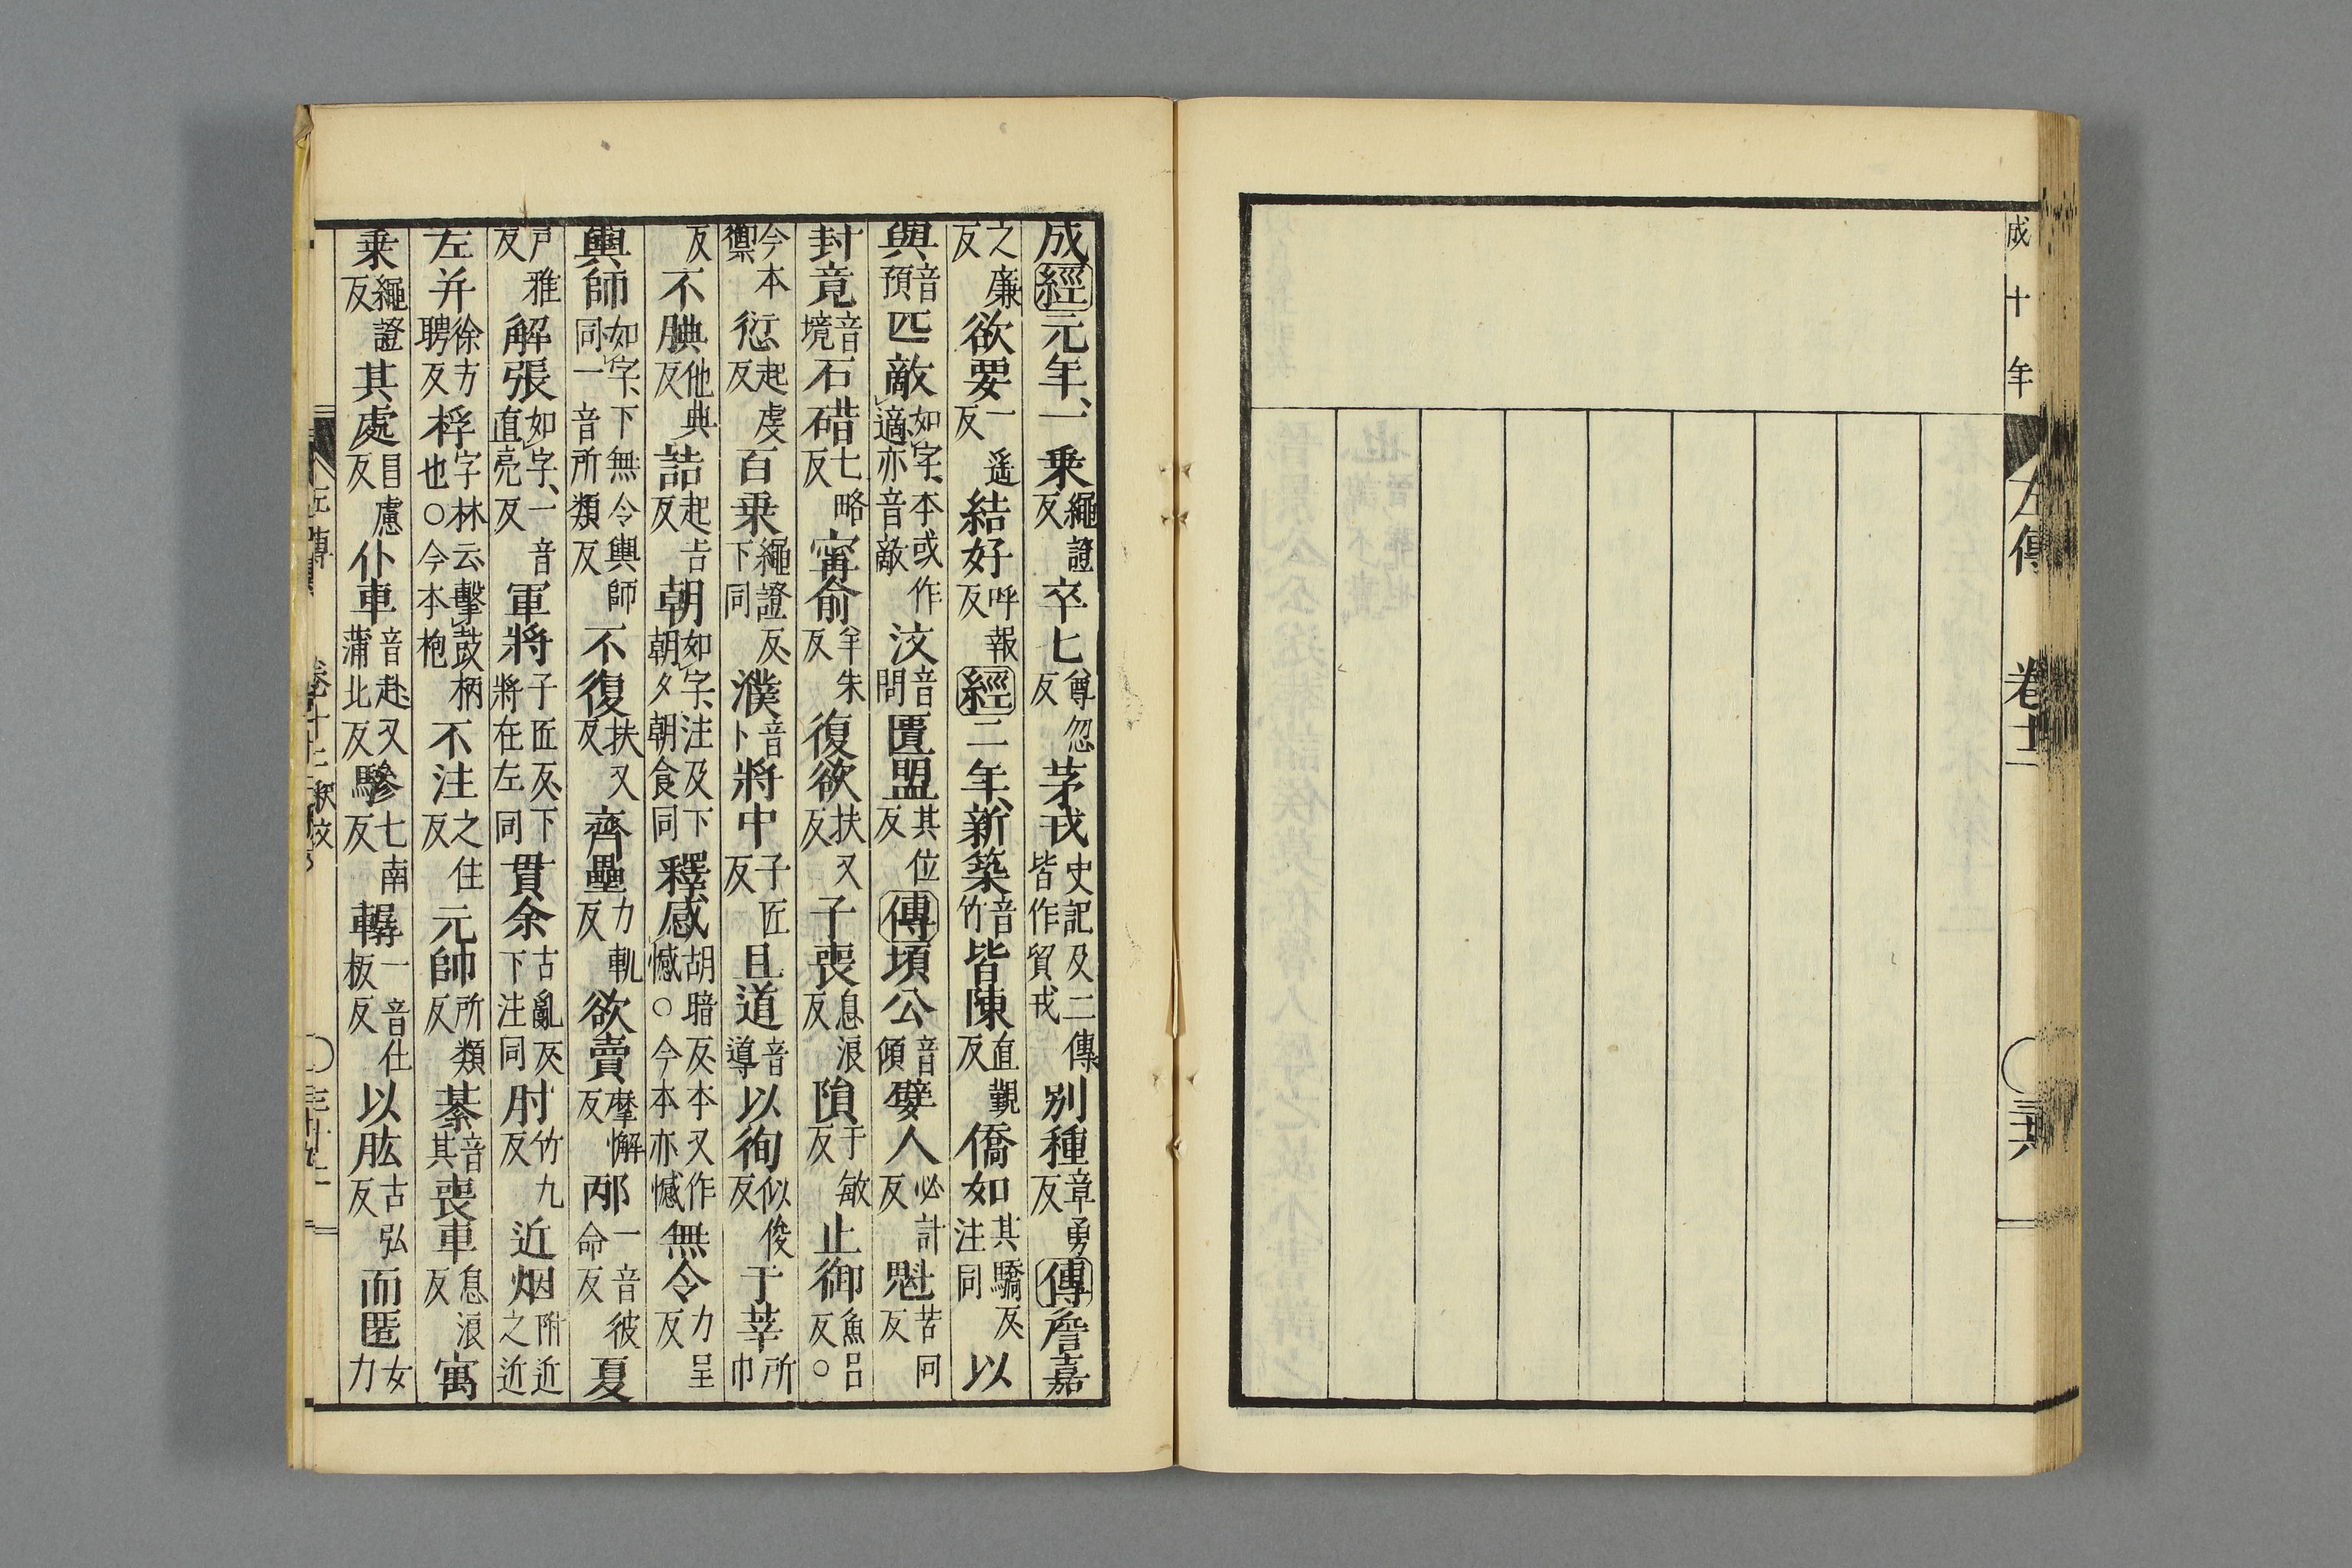 成十年
左傳　卷十二
成經元年、一乗繩證反卒七尊忽反茅戎史記及二傳皆作貿戎別種章勇反傳詹嘉
之廉反欲要一遥反結好呼報反經二年、新築音竹皆陳直覲反僑如其驕反注同以
與音預匹敵如字、本或作適、亦音敵汶音問匱盟其位反傳頃公音傾嬖人必計反魁苦回反
封竟音境石碏七略反甯俞羊朱反復欲扶又反子喪息浪反隕于敏反止御魚呂反○
今本禦愆起虔反百乗繩證反下同濮音卜將中子匠反且道音導以徇似俊反于莘所巾
反不腆他典反詰起吉反朝如字、注及下朝夕朝食同釋感胡暗反、本又作憾○今本亦憾無令力呈反
輿師如字、下無令輿師同、一音所類反不復扶又反齊壘力軌反欲賣摩懈反邴一音彼命反夏
戸雅反解張如字、一音直亮反軍將子匠反、下將在左同貫余古亂反、下注同肘竹九反近烟附近之近
左并徐方聘反桴字林云、擊鼓柄也○今本枹不注之住反元帥所類反綦音其喪車息浪反寓
乗繩證反其處昌慮反仆車音赴又蒲北反驂七南反轏一音仕板反以肱古弘反而匿女力